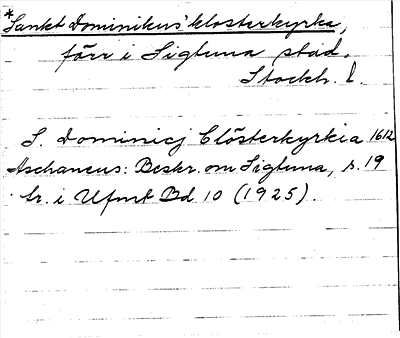 *Sankt Dominikus' klosterkyrka,
förr i Sigtuna stad,
Stockh. l.
S. Dominicj Clösterkyrkia 1612
Aschaneus: Beskr. om Sigtuna, s. 19
tr. i Ufmt Bd 10 (1925).